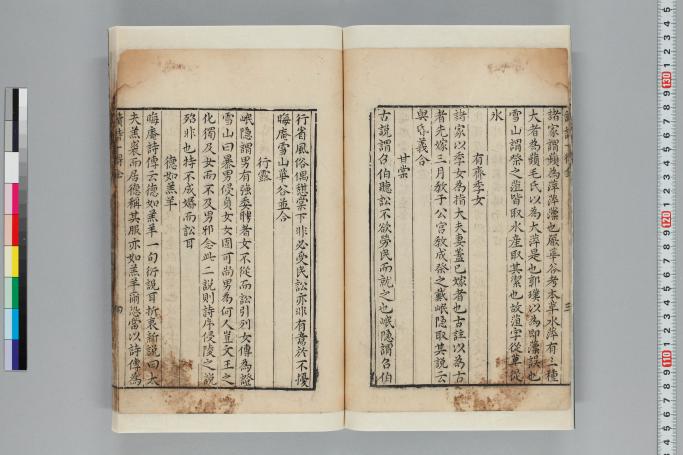 諸家謂蘋為萍萍藻也嚴華谷考本草水萍有三種
大者為蘋毛氏以為大萍是也郭璞以為即藻誤也
雪山謂祭之菹皆取水産取其潔也故菹字從草從
水
有齊季女
諸家以季女為指大夫妻蓋已嫁者也古註以為古
者先嫁三月教于公宮教成祭之岷隠取其説云
與昏義合
甘棠
古説謂召伯聽訟不欲勞民而就之也岷隠謂召伯
行省風俗偶憇棠下非必受民訟亦非有意於不擾
晦庵雪山華谷並合
行露
岷隠謂男有強委聘者女不從而訟引列女傳為證
雪山曰暴男侵貞女女固可尚男為何人豈文王之
化獨及女而不及男邪念此二説則詩序侵陵之説
殆非也特不成婚而訟耳
德如羔羊
晦庵詩傳云德如羔羊一句衍說耳折衷新說曰大
夫羔裘而居德稱其服亦如羔羊爾恐當以詩傳為